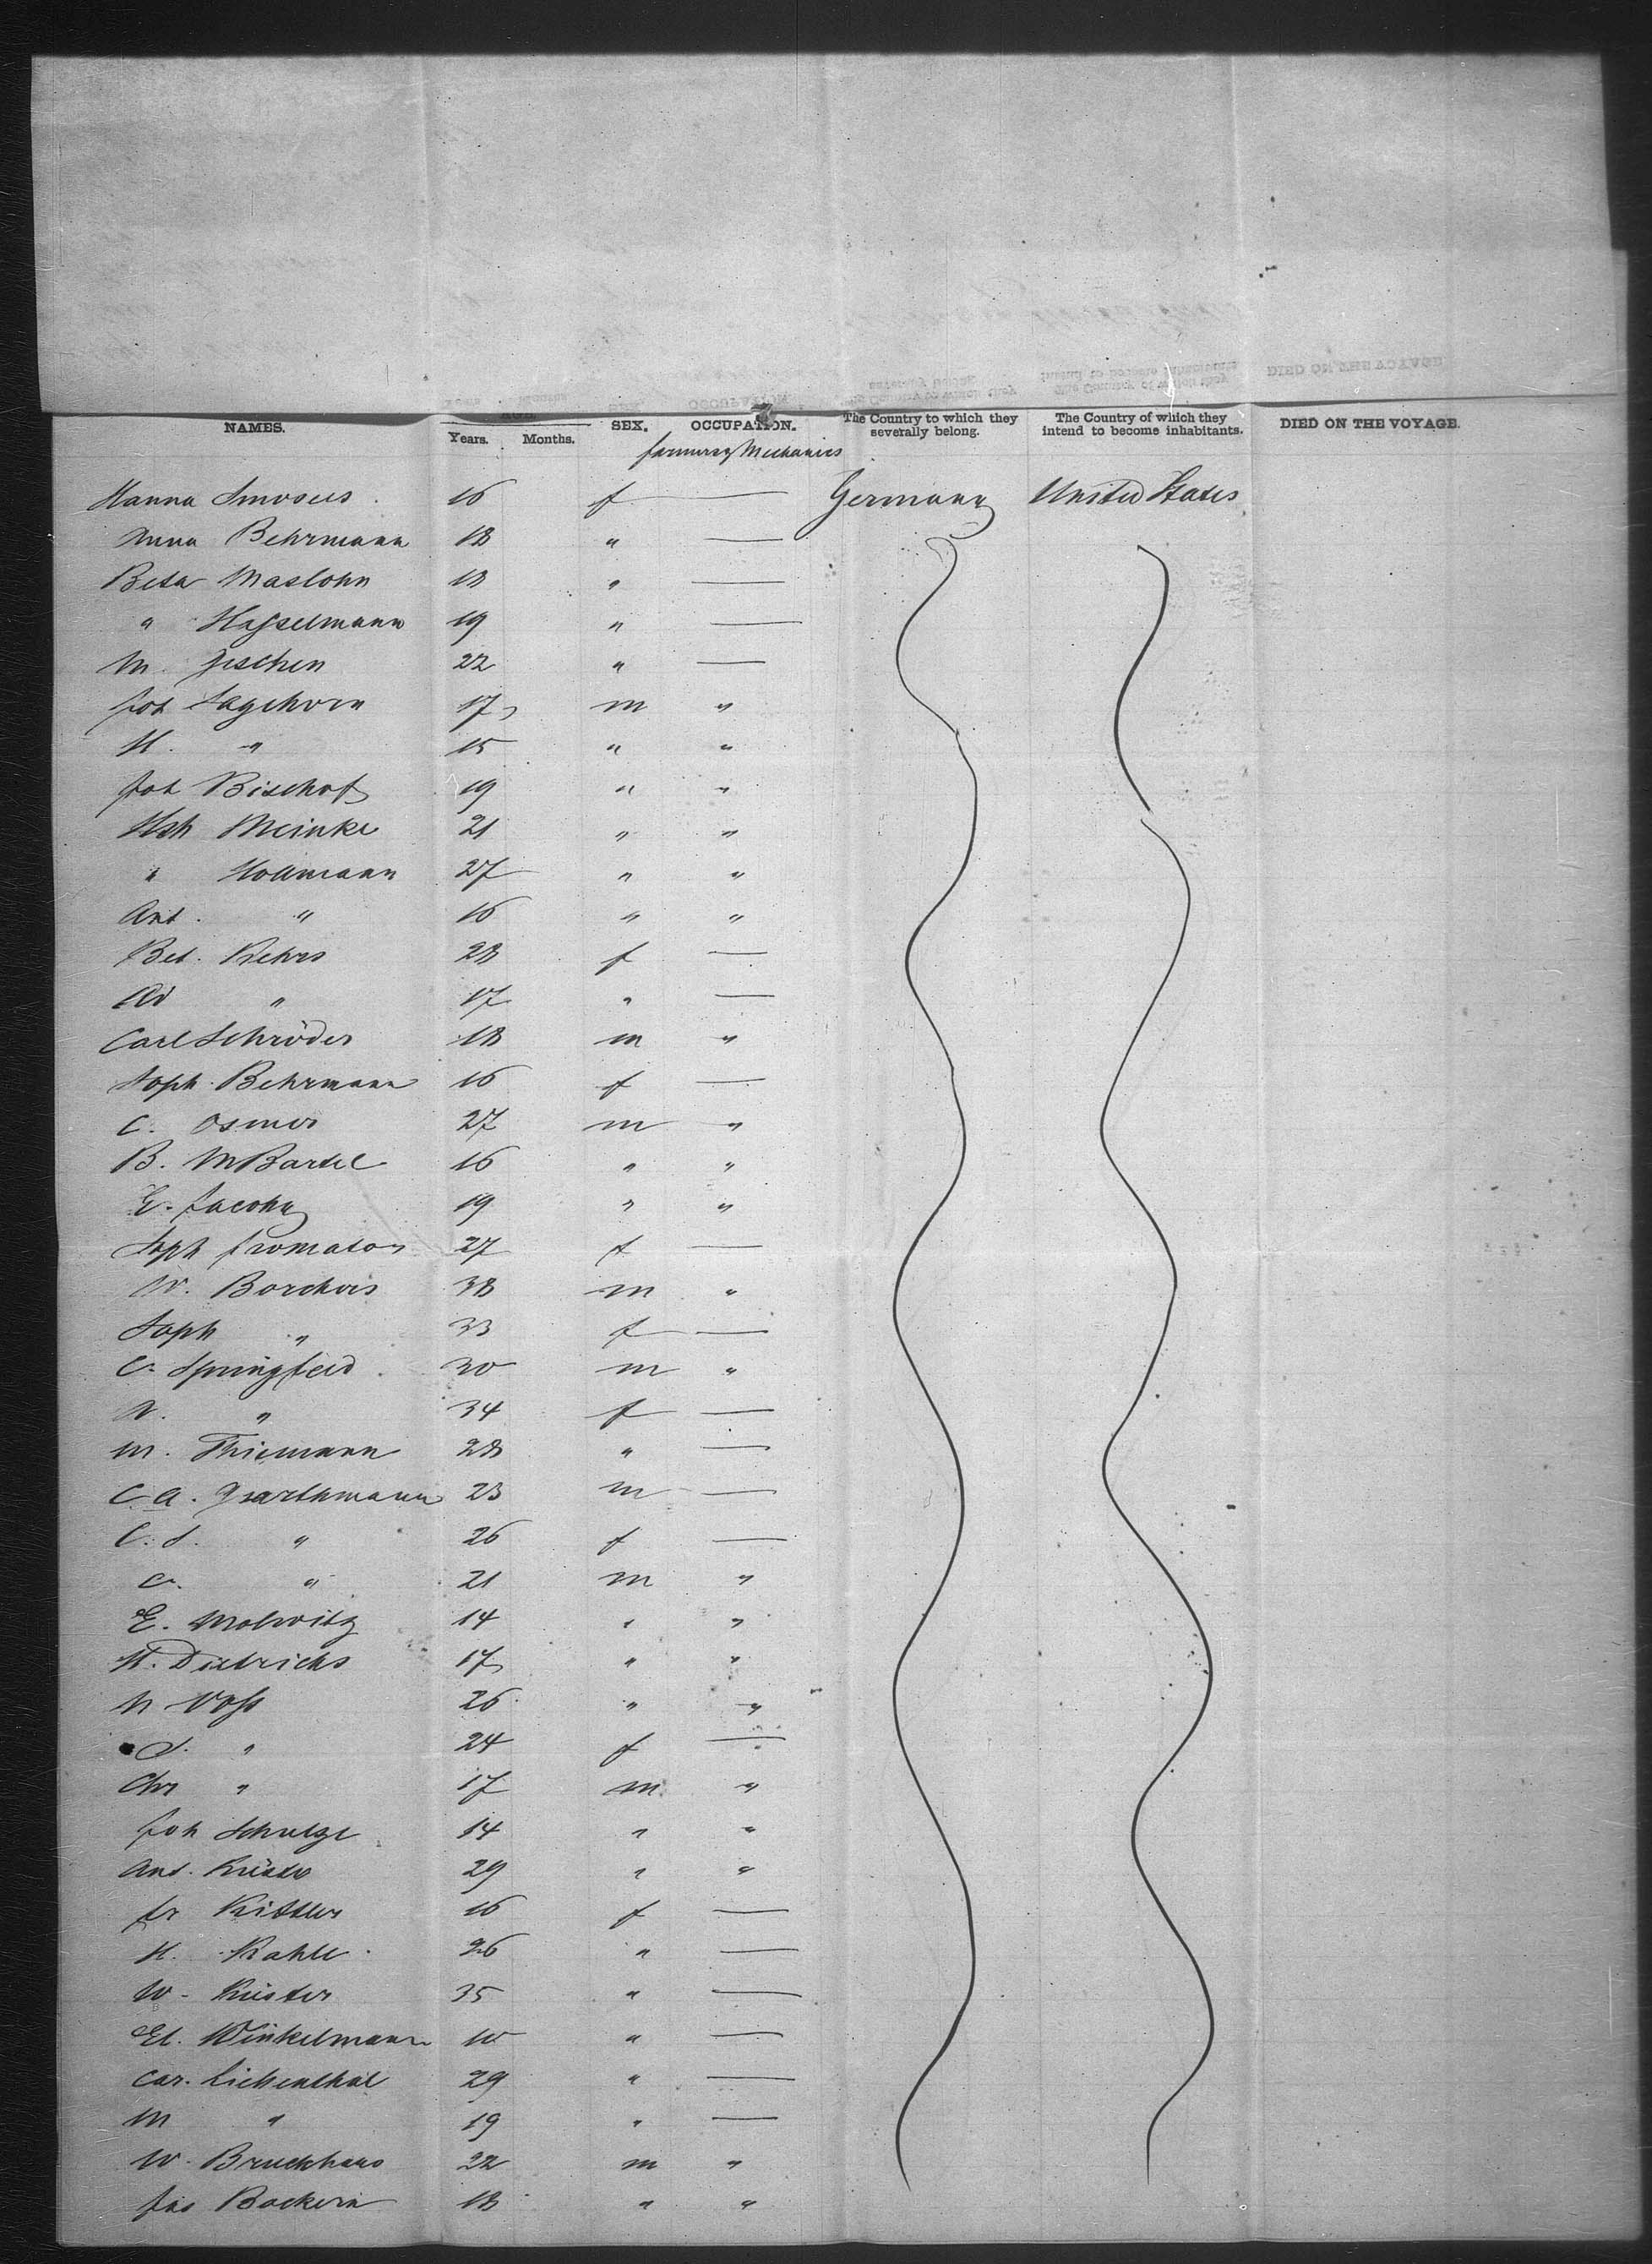 NAMES. AGE. SEX. OCCUPATION. The Country to which they severally belong. The Country of which they intend to become inhabitants. DIED ON THE VOYAGE.
Years. Months.
farmers & Mechanics
Hanna 16 f — Germany United States
Anna Behrmann 18 " —
Beta Maslohn 18 " —
" Hasselmann 19 " —
M. Jeschen 22 " —
Joh Sagehorn 17 m "
H. " 15 " "
Joh Bischof 19 " "
Hch Meinke 21 " "
" Hollmann 27 " "
Ant. " 16 " "
Bet. Kehrs 28 f —
Ad " 17 " —
Carl Schröder 18 m "
Soph. Behrmann 16 f —
C. Osmer 27 m "
B. M Bartel 16 " "
E. Jacoby 19 " "
Soph 27 f —
W. Borchers 38 m "
Soph " 33 f —
C. Springfeld 30 m "
" 34 f —
M. Thiemann 28 " —
C. A. 23 m —
C. S. " 26 f —
C. " 21 m "
E. Molwitz 14 " "
H. Dietrichs 17 " "
N Voss 26 " "
" 24 f —
Chr " 17 m "
Joh Schulze 14 " "
Ant. Küster 29 " "
Fr Kittler 16 f —
H. Kahle 26 " —
W. Küster 35 " —
El. Winkelmann 10 " —
Car. Lichenthal 29 " —
M " 19 " —
W. Bruckhaus 22 m "
18 " "